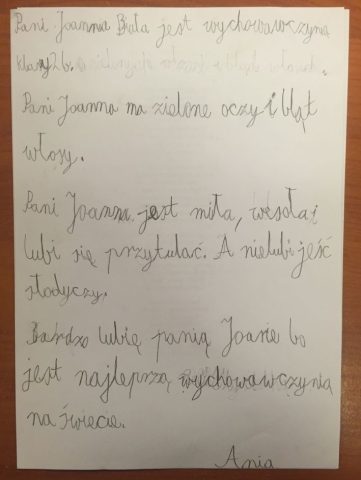 Pani Joanna Biała jest wychowawczynia
klasy 2b.
Pani Joanna ma zielone oczy i błąt
włosy.
Pani Joanna jest miła, wesoła i
lubi się przytulać. A nielubi jeść
słodyczy.
Bardzo lubię panią Joanie bo
jest najleprzą wychowawczynia
na świecie.
Ania